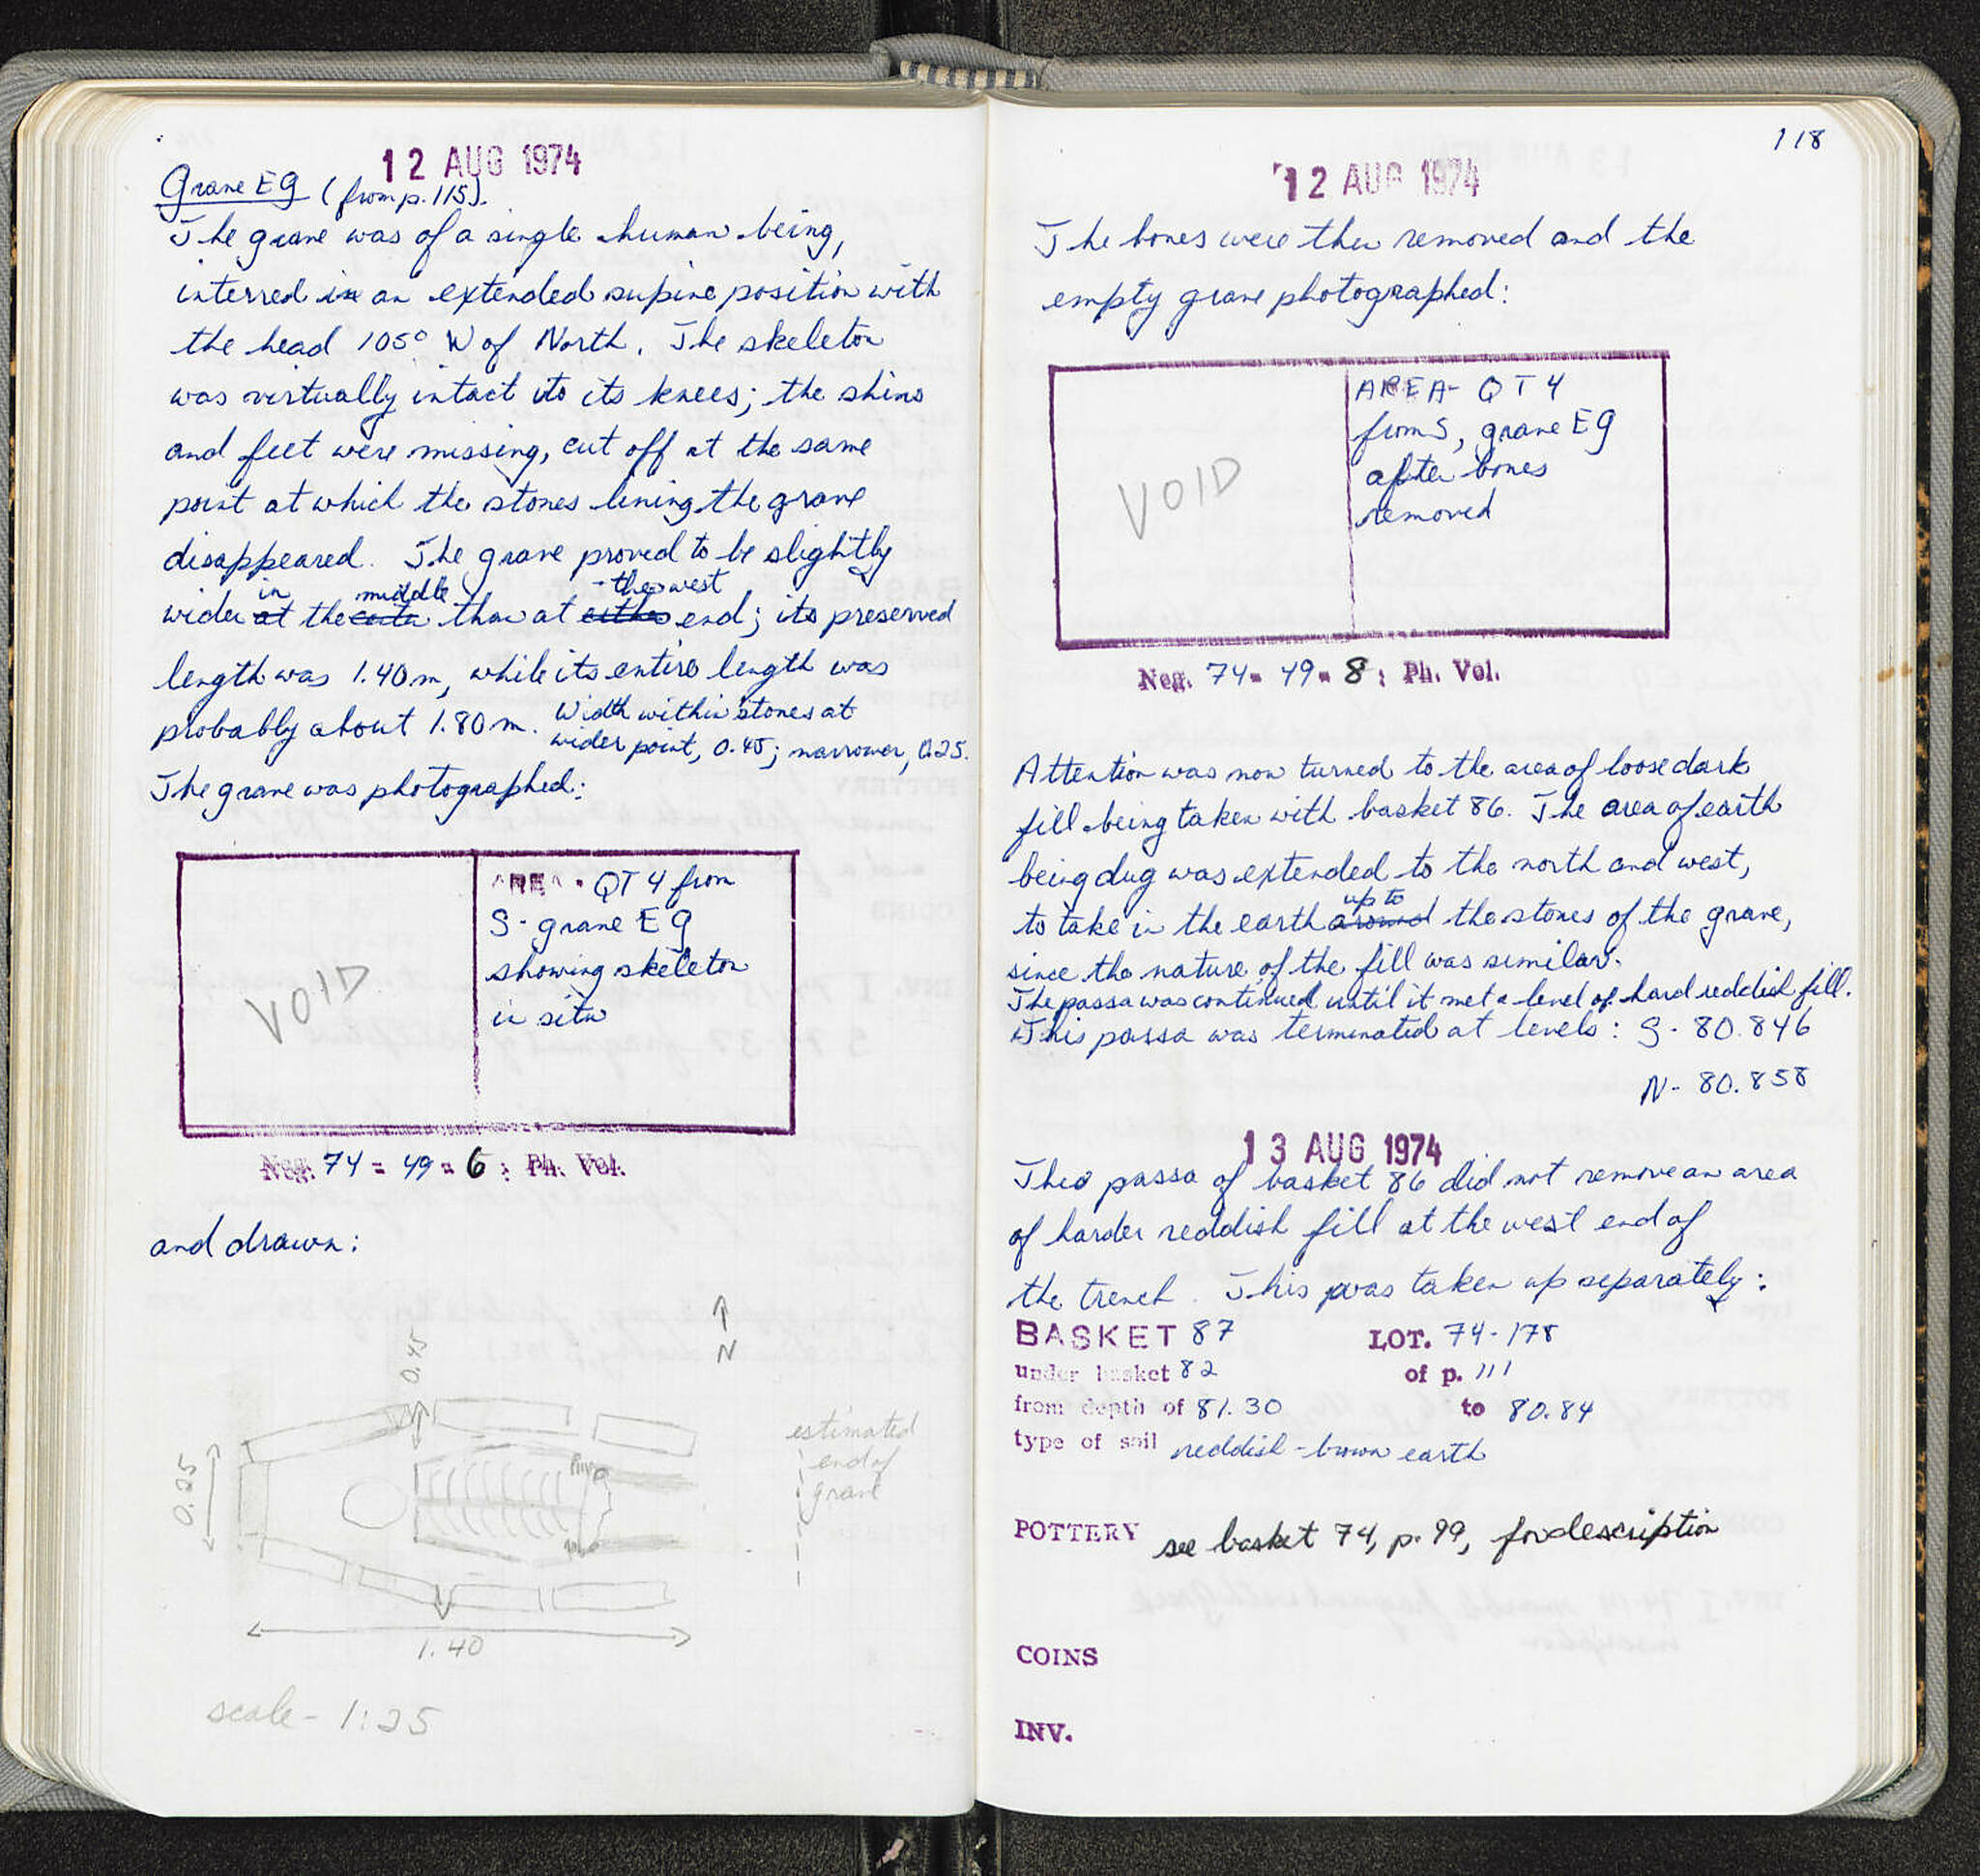 12 AUG 1974
Grave EG (from p. 115).
The grave was of a single human being,
interred in an extended supine position with
the head 105° W of North. The skeleton
was virtually intact to its knees; the shins
and feet were missing, cut off at the same
point at which the stones lining the grave
disappeared. The grave proved to be slightly
in middle the west
wider at the than at either end; its preserved
length was 1.40 m, while its entire length was
probably about 1.80 m. Width within stones at
wider point, 0.45; narrower, 0.25.
The grave was photographed:
VOID
AREA - QT 4 from
S - grave EG
showing skeleton
in situ
Neg. 74 - 49 - 6 ; Ph. Vol.
and drawn:
N
0.45
0.25
estimated
end of
grave
1.40
scale - 1:25
118
12 AUG 1974
The bones were then removed and the
empty grave photographed:
VOID
AREA - QT 4
from S, grave EG
after bones
removed
Neg. 74 - 49 - 8 ; Ph. Vol.
Attention was now turned to the area of loose dark
fill being taken with basket 86. The area of earth
being dug was extended to the north and west,
up to
to take in the earth around the stones of the grave,
since the nature of the fill was similar.
The passa was continued until it met a level of hard reddish fill.
This passa was terminated at levels: S - 80.846
N - 80.858
13 AUG 1974
This passa of basket 86 did not remove an area
of harder reddish fill at the west end of
the trench. This was taken up separately:
BASKET 87 LOT. 74-178
under basket 82 of p. 111
from depth of 81.30 to 80.84
type of soil reddish-brown earth
POTTERY see basket 74, p. 99, for description
COINS
INV.